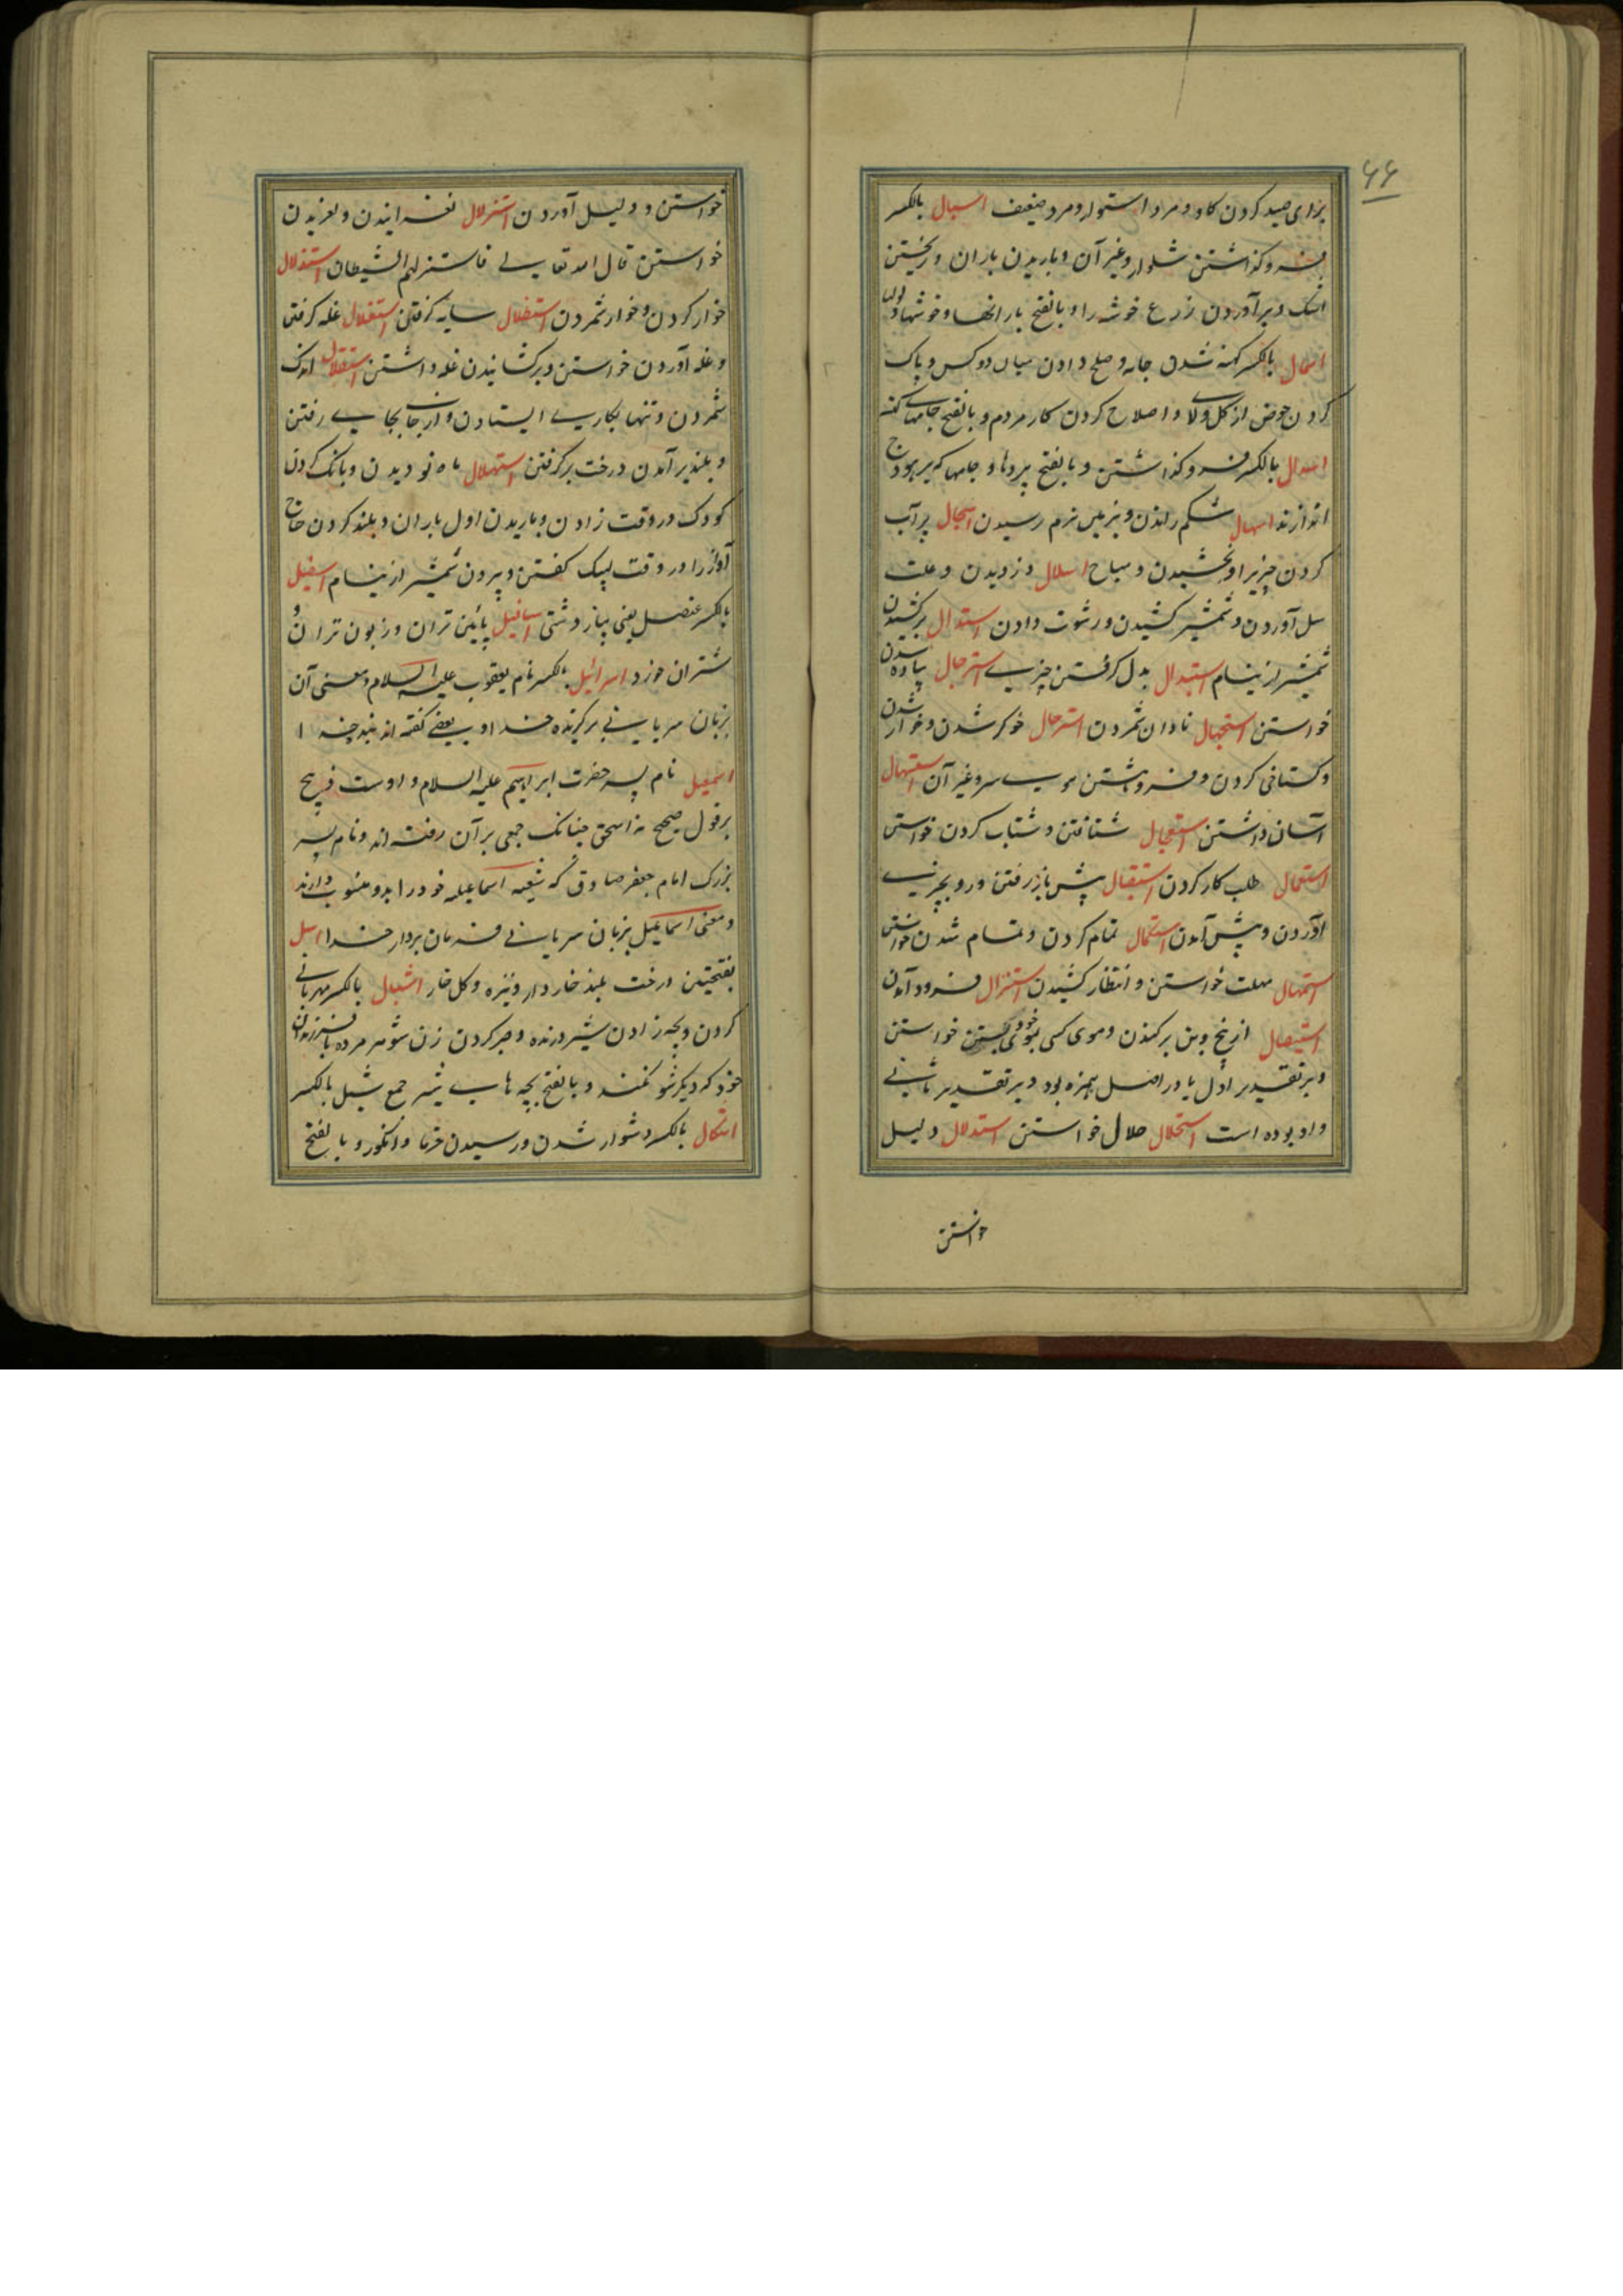 ۶۶
برای صید کردن کاو و مرد استوار و مرد ضعیف اسبال بالکسر
فرو کذاشتن شلوار و غیر آن و باریدن باران و ریختن
اشک و برآوردن زرع خوشه را و بالفتح بارانها و خوشها و
اسمال بالکسر کهنه شدن جامه و صلح دادن میان دو کس و پاک
کردن حوض از کل و لای و اصلاح کردن کار مردم و بالفتح جامهای کهنه
اسدال بالکسر فرو کذاشتن و بالفتح پردها و جامها که بر هودج
اندازند اسهال شکم راندن و بزمین نرم رسیدن اسجال پر آب
کردن چیزیرا و بخشیدن و مباح اسلال دزدیدن و علت
سل آوردن و شمشیر کشیدن و رشوت دادن استدال برکشیدن
شمشیر از نیام استبدال بدل کرفتن چیزی استرجال پیاده شدن
خواستن استجهال نادان شمردن استرحال خوکر شدن و خوار شدن
و کستاخی کردن و فروهشتن موی سر و غیر آن استهال
آسان داشتن استعجال شتافتن و شتاب کردن خواستن
استعمال طلب کار کردن استقبال پیش باز رفتن و رو بچیزی
آوردن و پیش آمدن استکمال تمام کردن و تمام شدن خواستن
استمهال مهلت خواستن و انتظار کشیدن استنزال فرود آمدن
استیصال از بیخ و بن برکندن و موی کسی بموی خود بستن خواستن
و بر تقدیر اول یا در اصل همزه بود و بر تقدیر ثانی
واو بوده است استحلال حلال خواستن استدلال دلیل
خواستن
خواستن و دلیل آوردن استزلال لغزانیدن و لغزیدن
خواستن قال الله تعالی فاستزلهم الشیطان استذلال
خوار کردن و خوار شمردن استظلال سایه کرفتن استغلال غله کرفتن
و غله آوردن خواستن و برکشانیدن غله داشتن استقلال اندک
شمردن و تنها بکاری ایستادن و از جای بجایی رفتن
و بلند بر آمدن درخت برکرفتن استهلال ماه نو دیدن و بانک کردن
کودک در وقت زادن و باریدن اول باران و بلند کردن حاج
آواز را در وقت لبیک کفتن و بیرون شمشیر از نیام اسقیل
بالکسر عنصل یعنی پیاز دشتی اسافیل پائین تران و زبون تران و
شتران خورد اسرائیل بالکسر نام یعقوب علیه السلام و معنی آن
بزبان سریانی برکزیده خدا و بعضی کفته اند بنده خدا
اسمعیل نام پسر حضرت ابراهیم علیه السلام و اوست ذبیح
بر قول صحیح نه اسحق چنانک جمعی بر آن رفته اند و نام پسر
بزرک امام جعفر صادق که شیعه اسماعیلیه خود را بدو منسوب دارند
و معنی اسماعیل بزبان سریانی فرمان بردار خدا اسل
بفتحتین درخت بلند خاردار و نیزه و کل خار اشبال بالکسر مهربانی
کردن و بچه زادن شیر درنده و صبر کردن زن شوهر مرده با فرزندان
خود که دیکر شو نکند و بالفتح بچه های شیر جمع شبل بالکسر
اشکال بالکسر دشوار شدن و رسیدن خرما و انکور و بالفتح